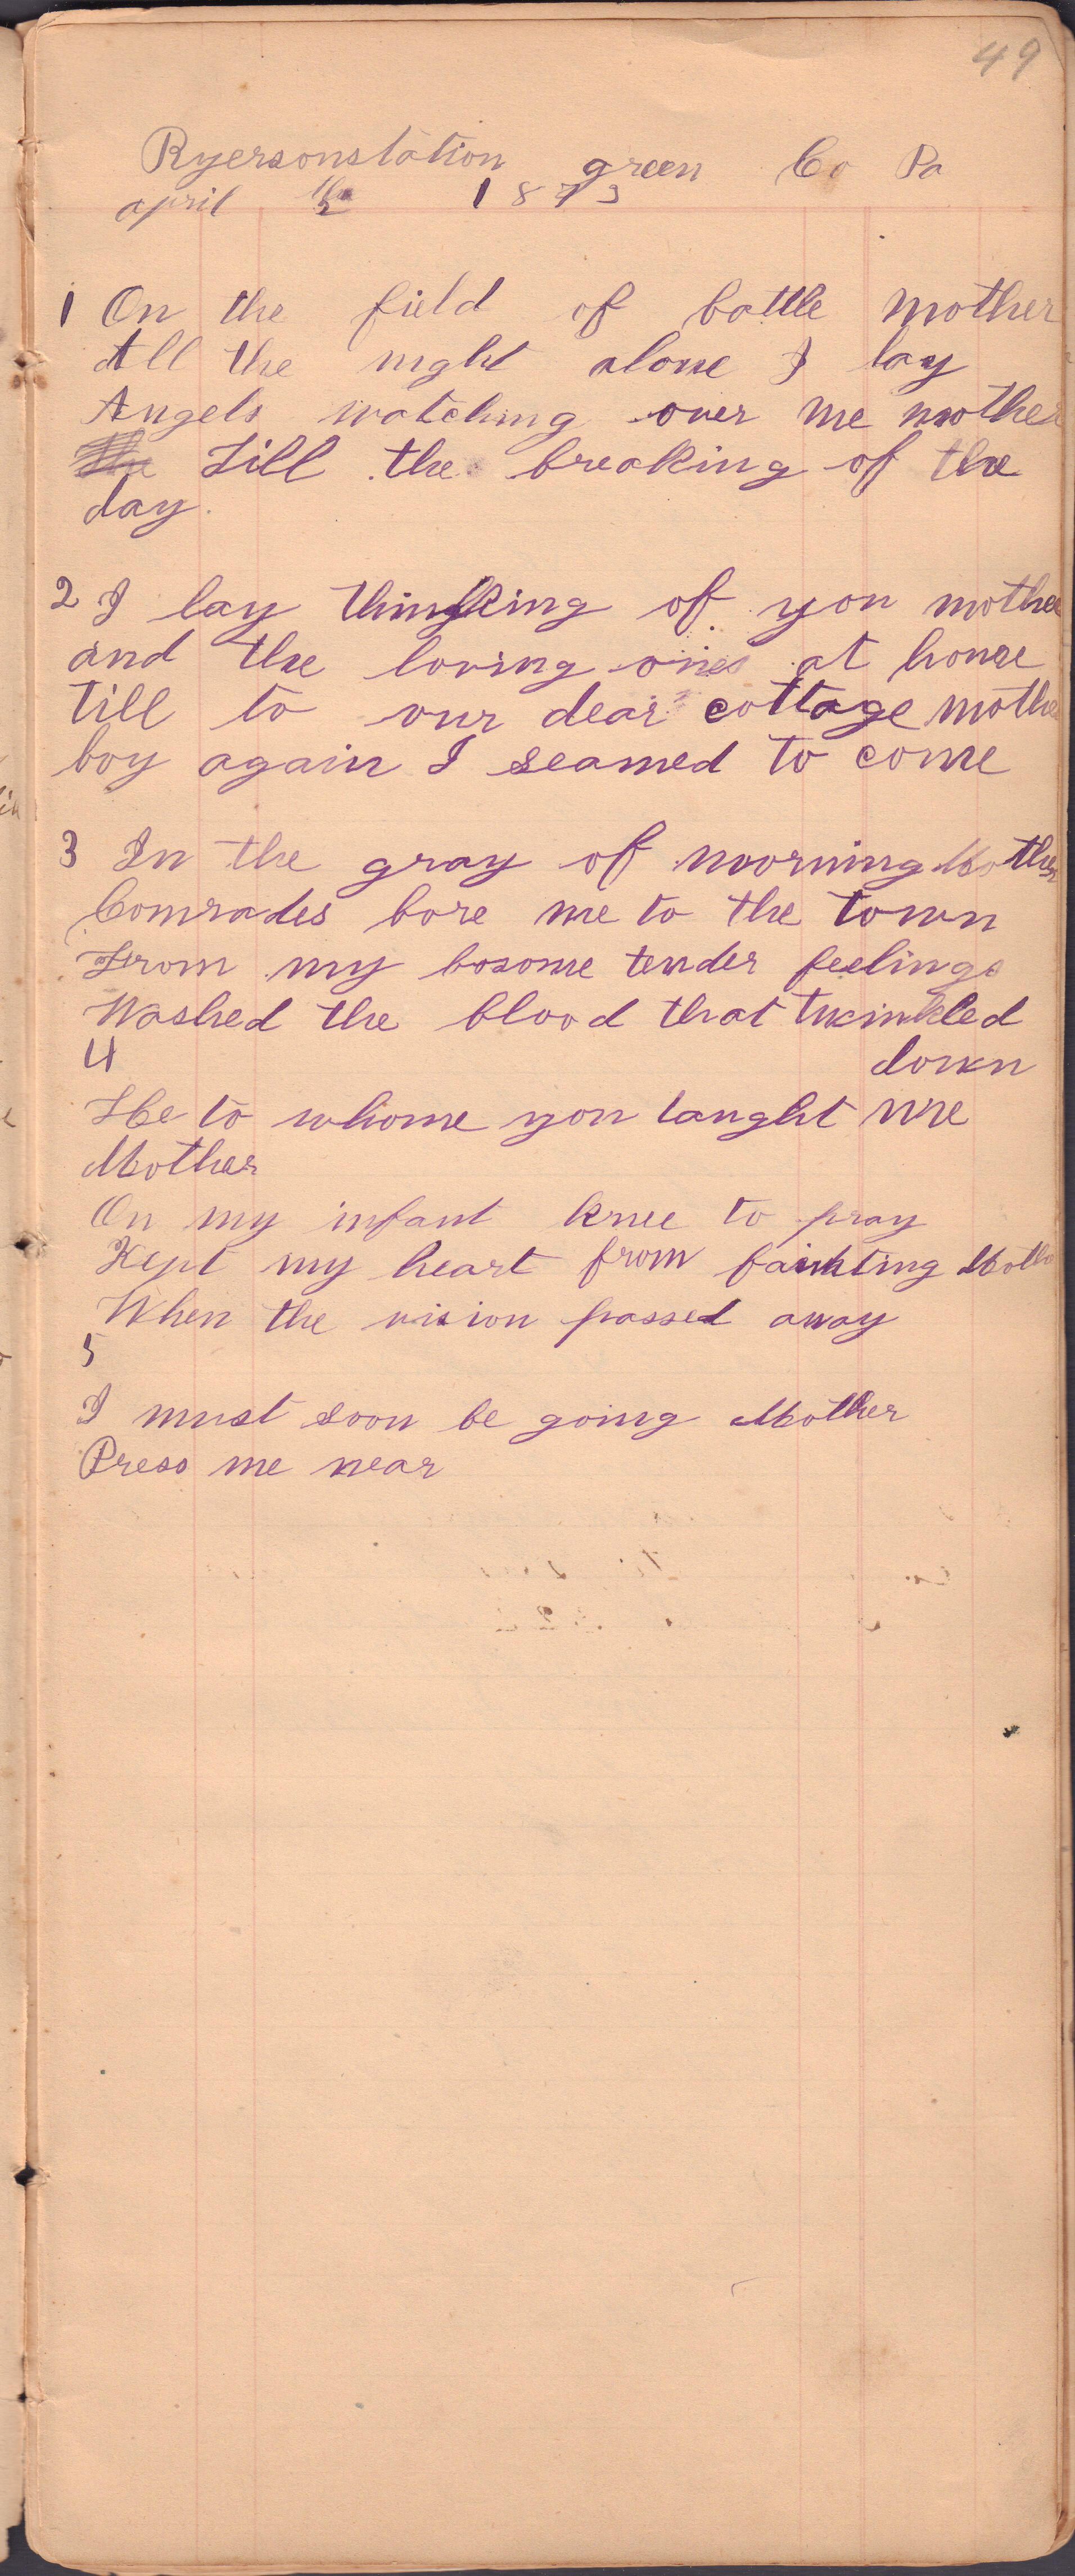 49
Ryersonstation green Co Pa
april 1873
1 On the field of battle mother
All the night alone I lay
Angels watching over me mother
Till the breaking of the
day.
2 I lay thinking of you mother
and the loving ones at home
till to our dear cottage mother
boy again I seamed to come
3 In the gray of morning Mother
Comrades bore me to the town
From my bosome tender feelings
Washed the blood that twinkled
down
4
He to whome you taught me
Mother
On my infant knee to pray
Kept my heart from fainting Mother
When the vision passed away
5
I must soon be going Mother
Press me near